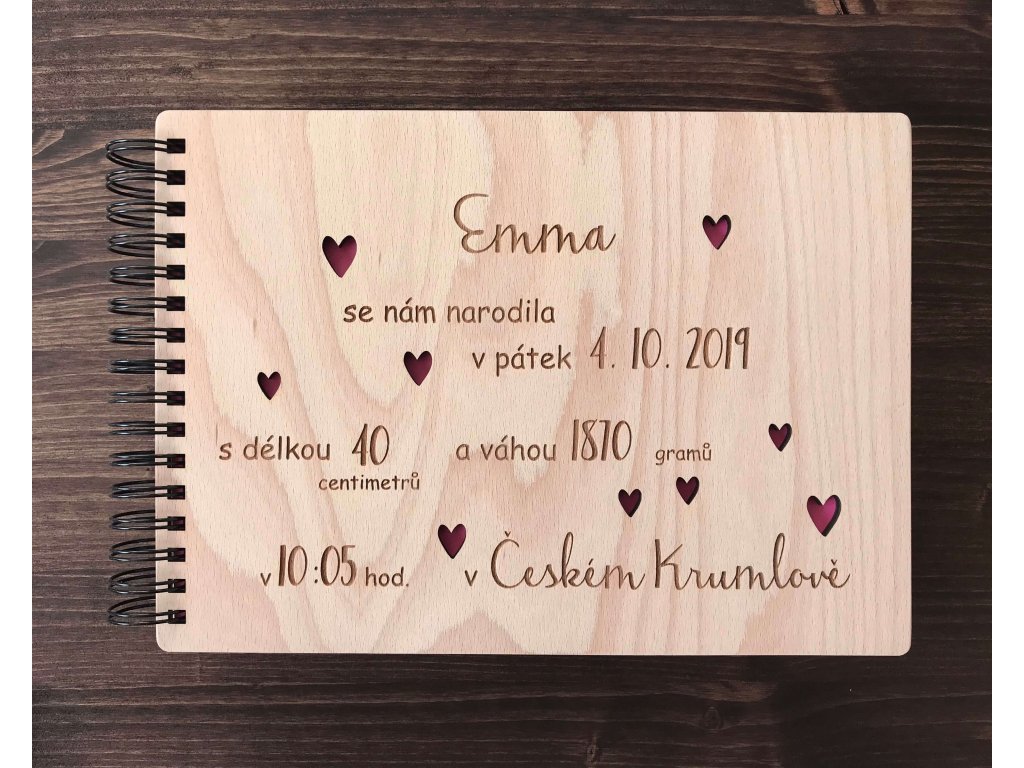 Emma
se nám narodila
v pátek 4. 10. 2019
s délkou 40 a váhou 1870 gramů
centimetrů
v 10:05 hod. v Českém Krumlově